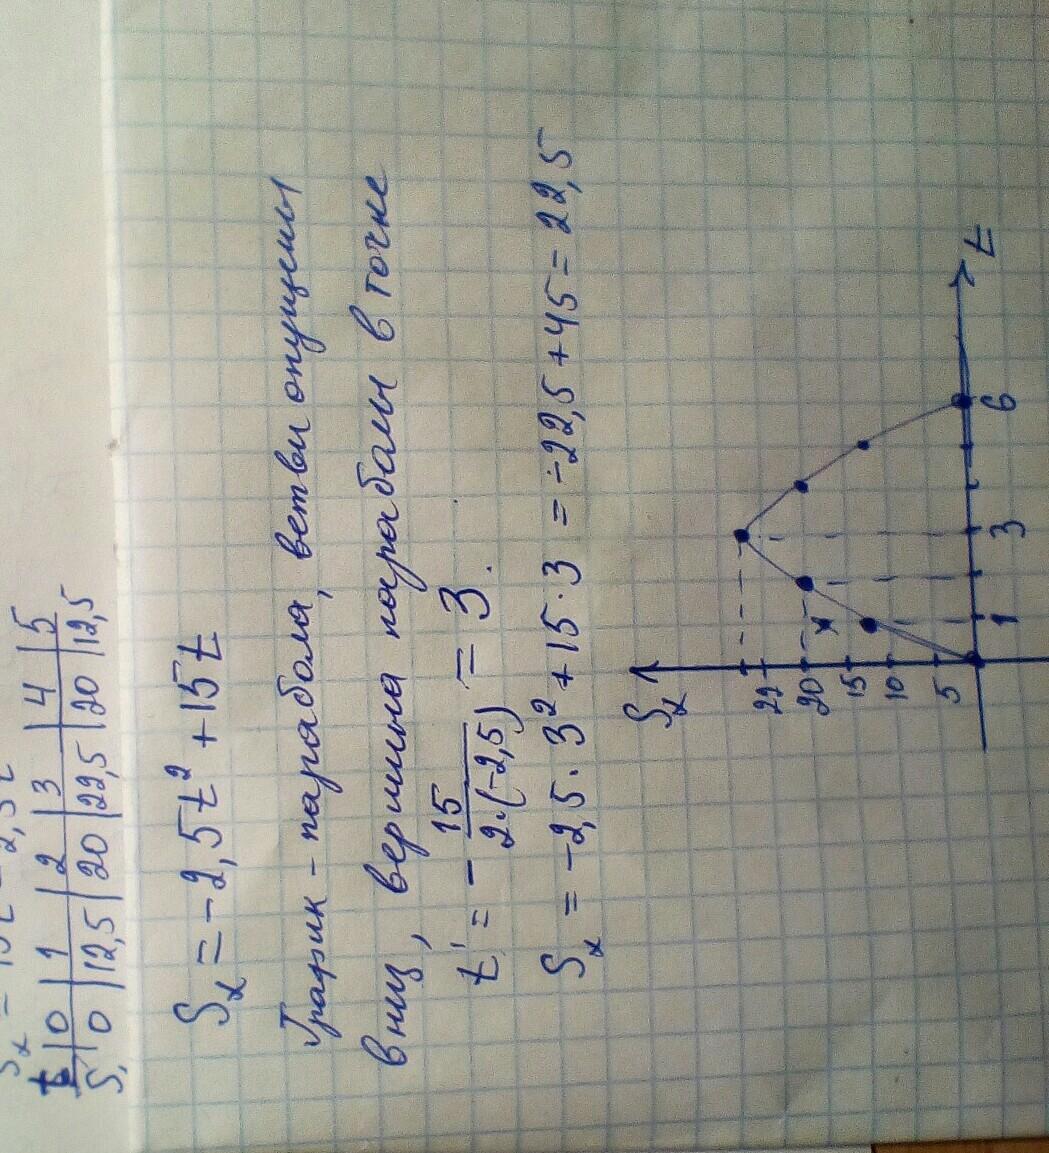 Sₓ = 15t - 2,5t
t | 0 | 1 | 2 | 3 | 4 | 5
S, | 0 | 12,5 | 20 | 22,5 | 20 | 12,5
Sₓ = -2,5t² + 15t
График - парабола, ветви опущены
вниз, вершина параболы в точке
t' = - 15 / 2·(-2,5) = 3.
Sₓ = -2,5 · 3² + 15 · 3 = -22,5 + 45 = 22,5
Sₓ
20
15
10
5
1
3
6
t